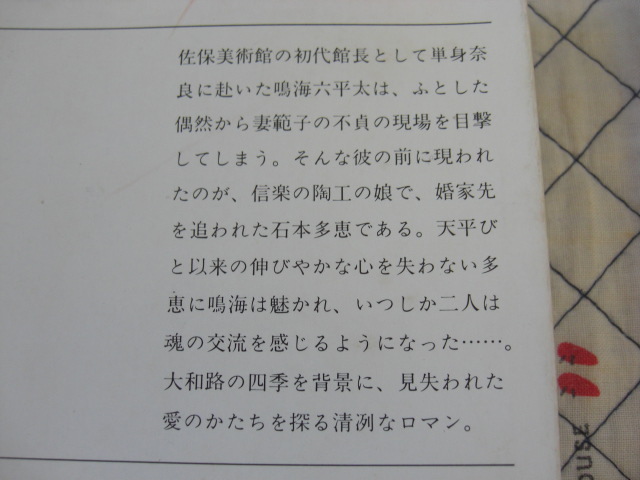 佐保美術館の初代館長として単身奈
良に赴いた鳴海六平太は、ふとした
偶然から妻範子の不貞の現場を目撃
してしまう。そんな彼の前に現われ
たのが、信楽の陶工の娘で、婚家先
を追われた石本多恵である。天平び
と以来の伸びやかな心を失わない多
恵に鳴海は魅かれ、いつしか二人は
魂の交流を感じるようになった……。
大和路の四季を背景に、見失われた
愛のかたちを探る清冽なロマン。